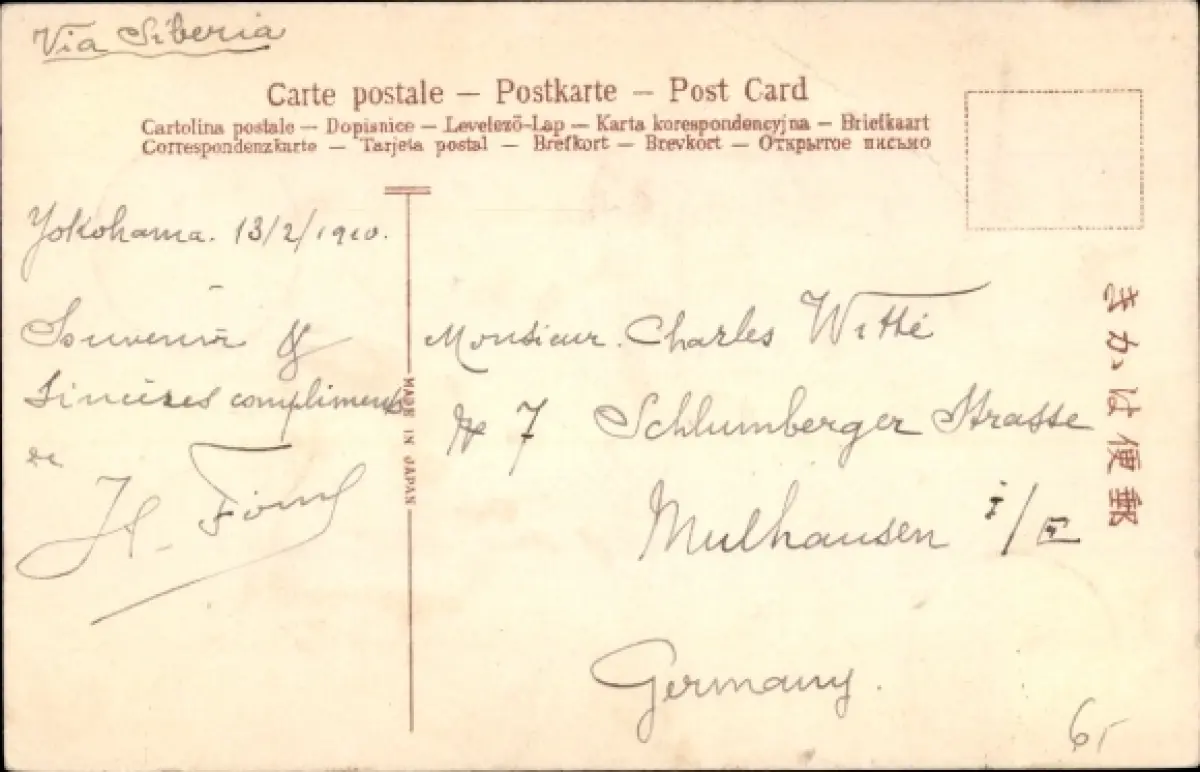 Via Siberia
Carte postale — Postkarte — Post Card
Cartolina postale — Dopisnice — Levelező-Lap — Karta korespondencyjna — Briefkaart
Correspondenzkarte — Tarjeta postal — Brefkort — Brevkort — Открытое письмо
Yokohama. 13/2/1910.
Souvenir &
Sincères compliments
de
H.
MADE IN JAPAN
Monsieur. Charles Witté
№ 7 Schlumberger Strasse
Mulhausen i/E
Germany.
きかは便郵